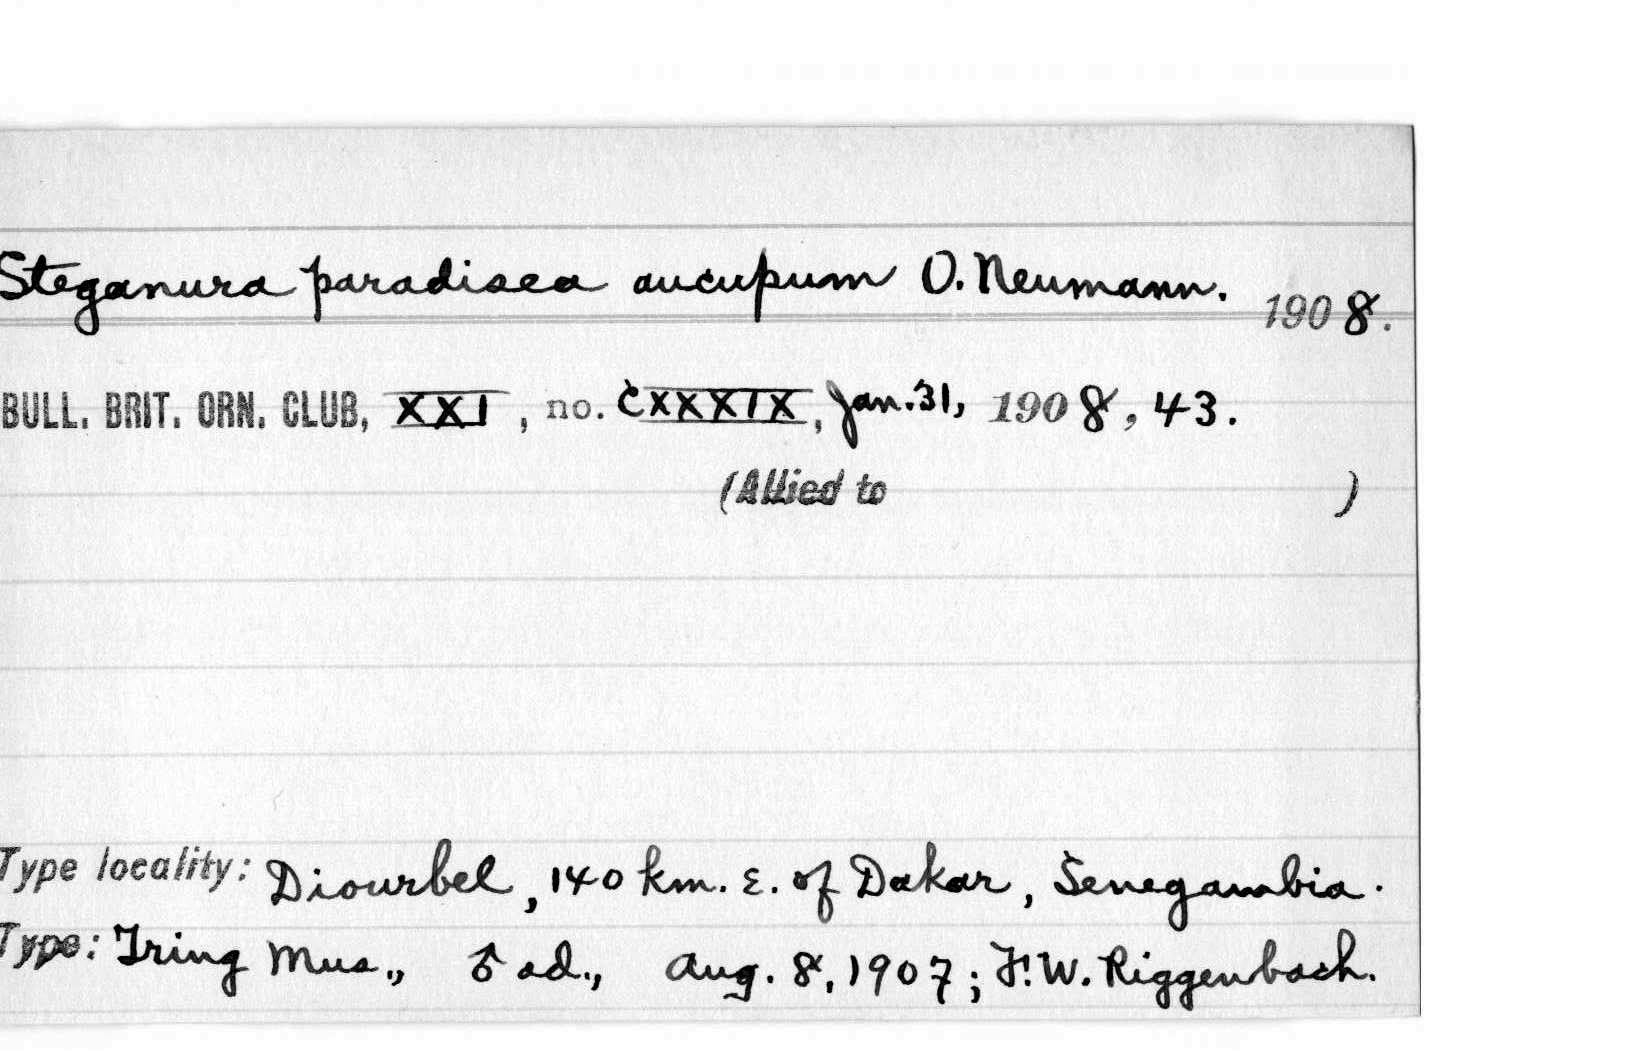 Steganura paradisea aucupum O. Neumann. 1908.
BULL. BRIT. ORN. CLUB, XXI, no. CXXXIX, Jan. 31, 1908, 43.
(Allied to )
Type locality: Diourbel, 140 km. E. of Dakar, Senegambia.
Type: Tring Mus., ♂ ad., Aug. 8, 1907; F. W. Riggenbach.